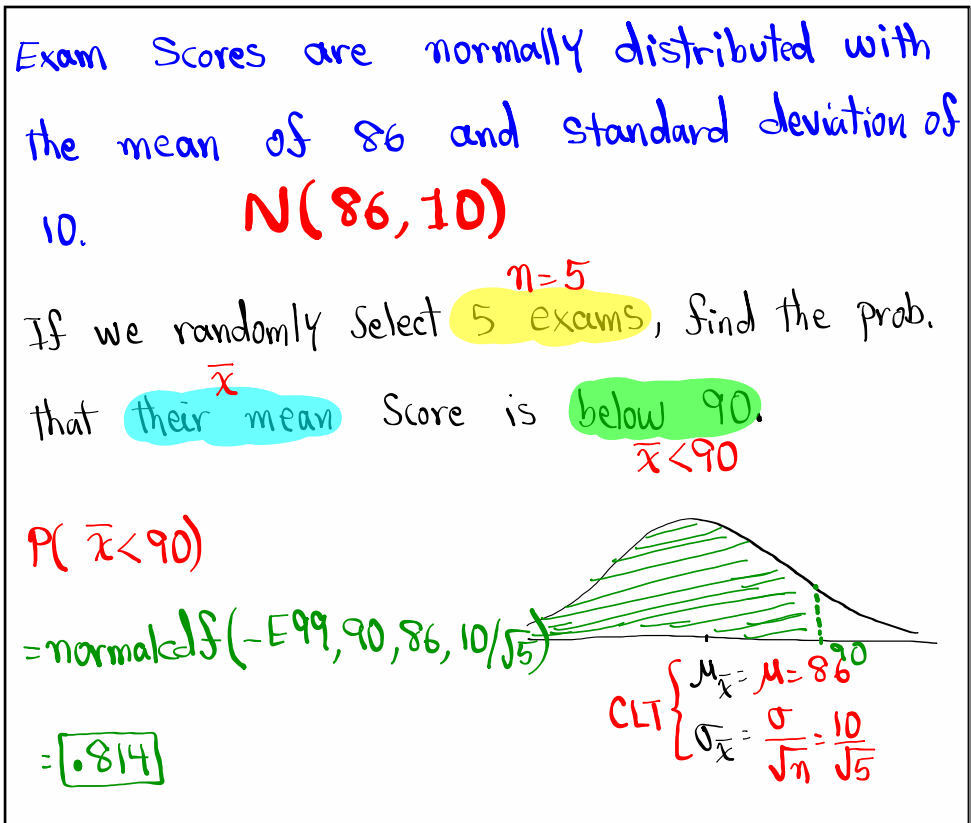 Exam Scores are normally distributed with
the mean of 86 and standard deviation of
10. N(86, 10)
n = 5
If we randomly Select 5 exams, find the prob.
x̄
that their mean Score is below 90.
x̄ < 90
P( x̄ < 90)
= normalcdf(-E99, 90, 86, 10/√5)
90
CLT { μx̄ = μ = 86
σx̄ = σ/√n = 10/√5
= .814